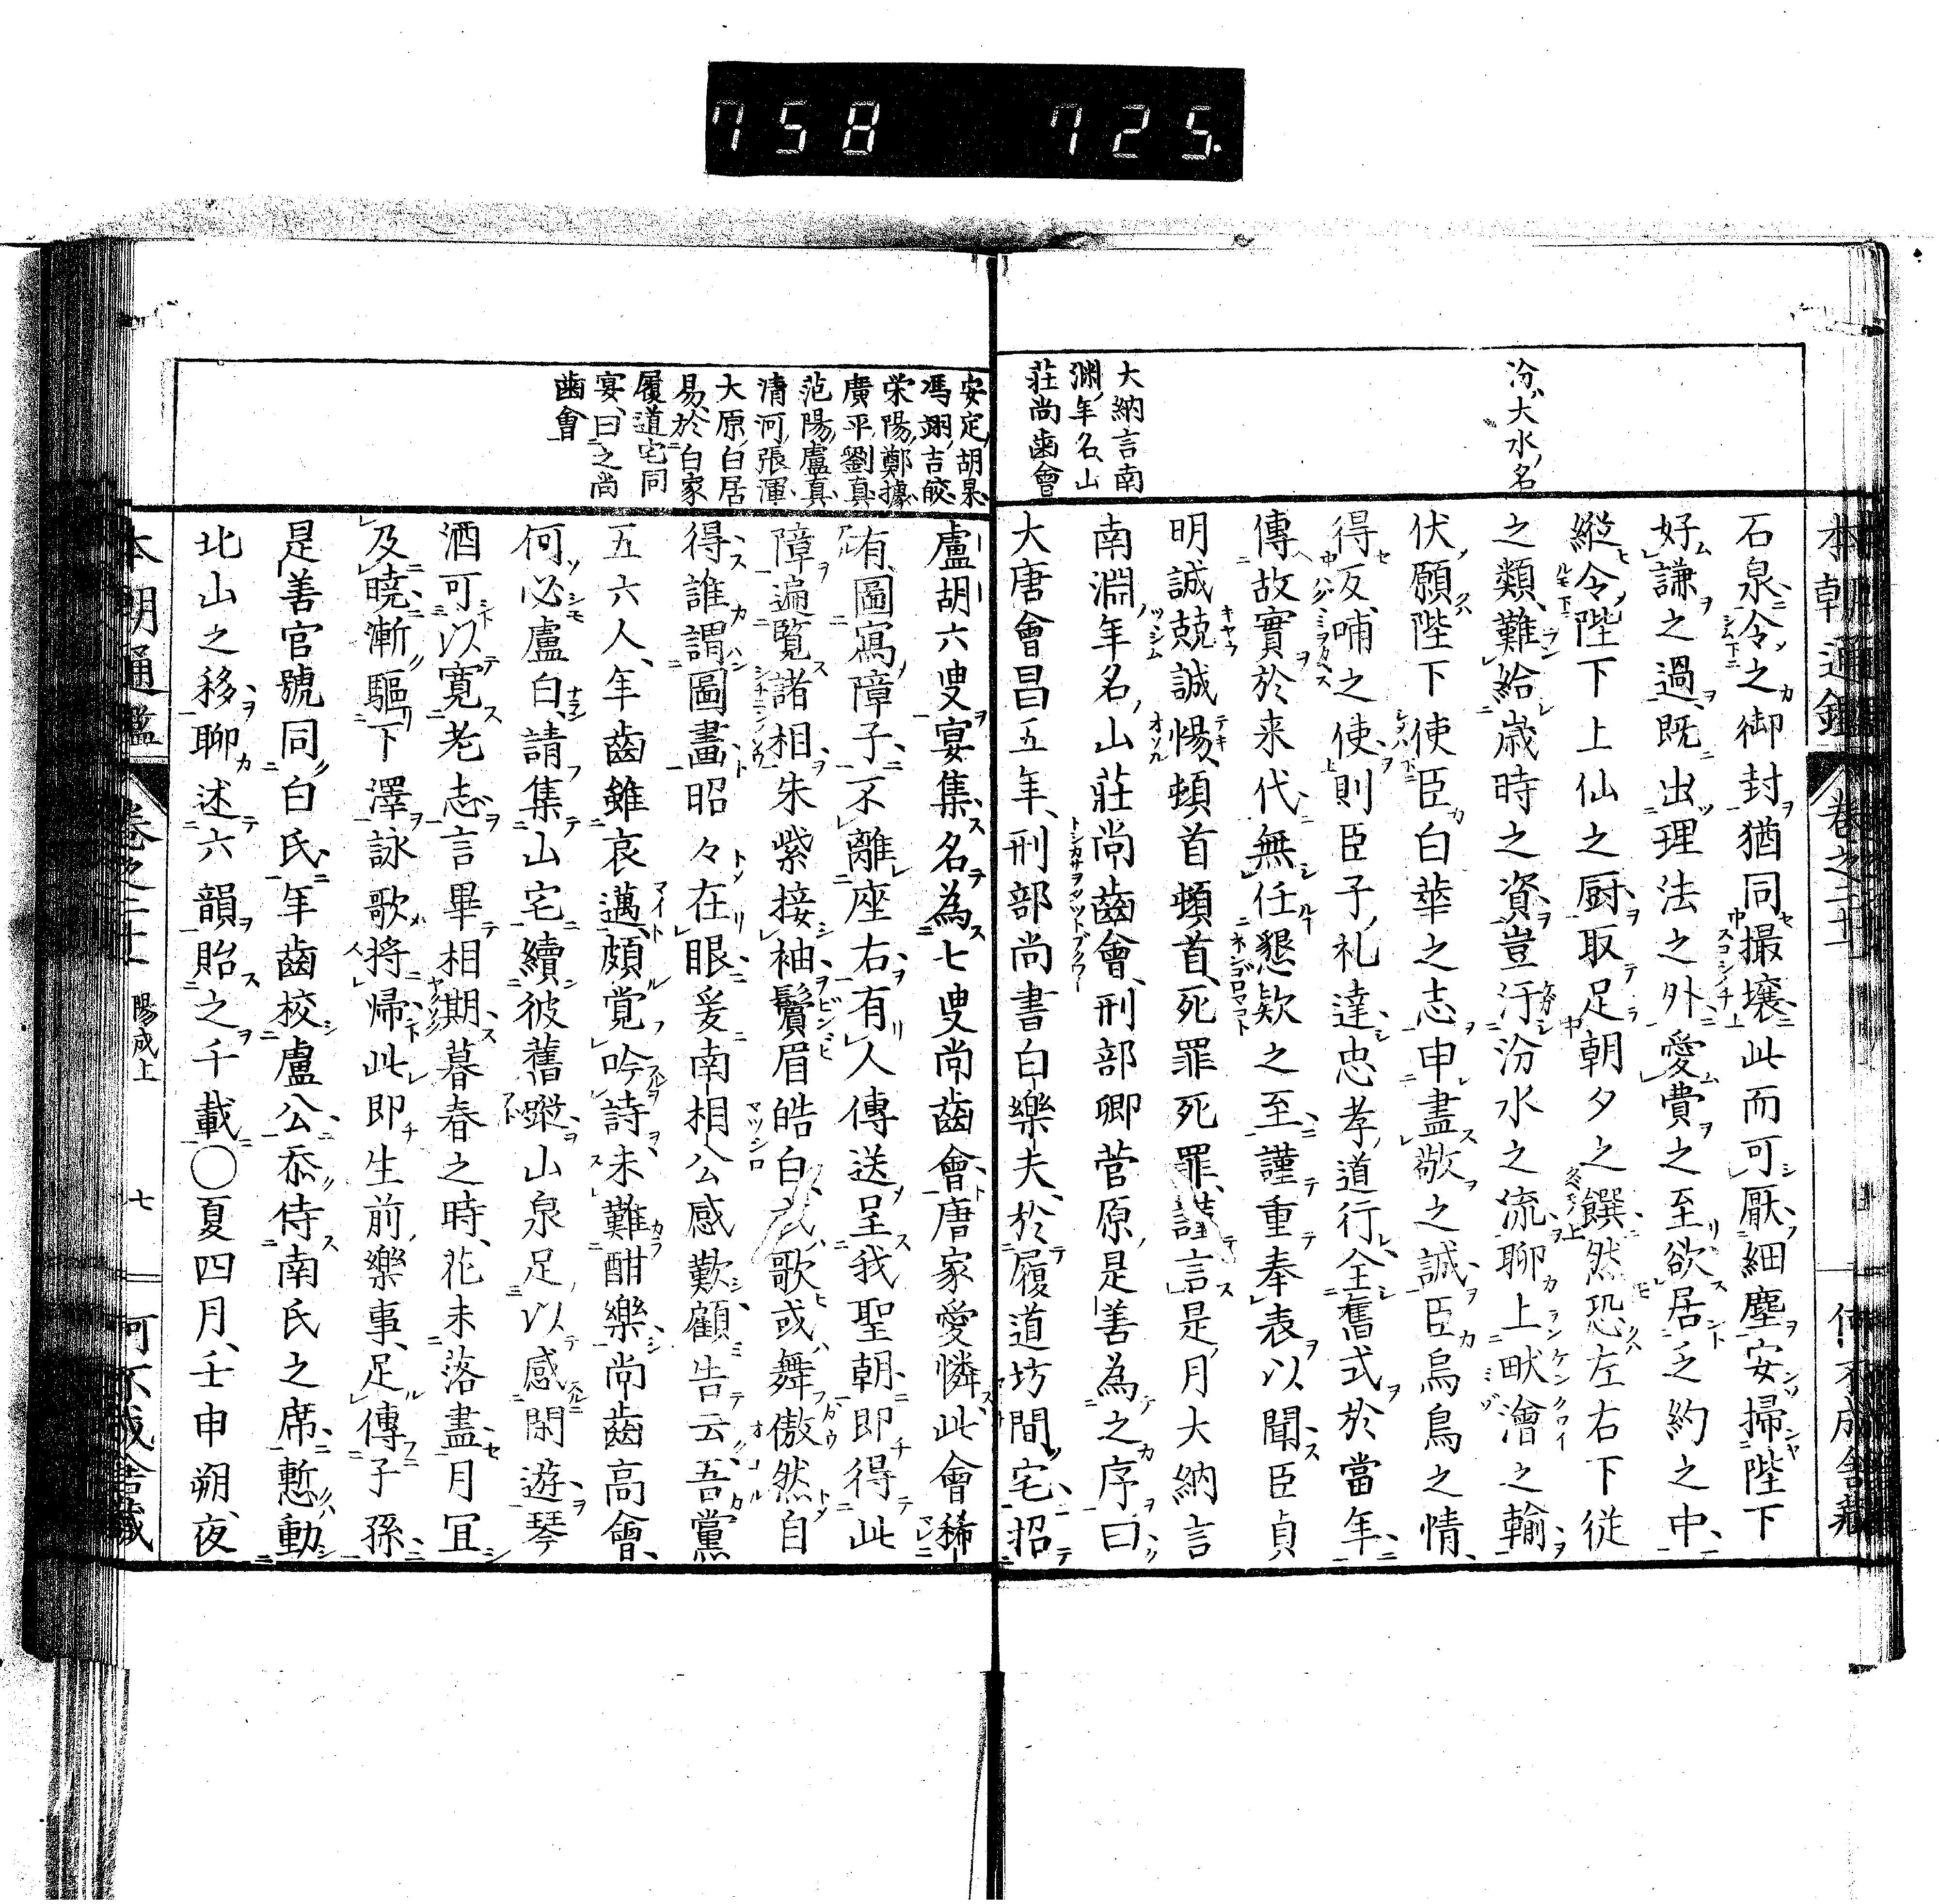 758 725.
汾ハ大水ノ名
大納言南
淵ノ年名ノ山
莊尚齒會
石泉令之御封猶同撮壤此而可厭細塵安掃陛下
好謙之過既出理法之外愛費之至欲居乏約之中
縱令陛下上仙之厨取足朝夕之饌然恐左右下従
之類難給歳時之資豈汙汾水之流聊上畎澮之輸
伏願陛下使臣白華之志申盡敬之誠臣烏鳥之情
得反哺之使則臣子ノ礼達忠孝ノ道行全舊式於當年
傳故實於来代無任懇欵之至謹重奉表以聞臣貞
明誠兢誠惕頓首頓首死罪死罪謹言是月大納言
南淵ノ年名ノ山莊尚齒會刑部卿菅原ノ是善為之序曰
大唐會昌五年刑部尚書白樂天於履道坊閒宅招
安定ノ胡杲
馮翊ノ吉皎
栄陽ノ鄭據
廣平ノ劉真
范陽ノ盧真
清河ノ張渾
大原ノ白居
易於白家
履道宅同
宴曰之尚
齒會
盧胡六叟宴集名為七叟尚齒會唐家愛憐此會稀
有圖寫障子不離座右有人傳送呈我聖朝即得此
障遍覧諸相朱紫接袖鬢眉皓白或歌或舞傲然自
得誰謂圖畫昭々在眼爰南相公感歎顧告云吾黨
五六人年齒雖哀邁頗覚吟詩未難酣樂尚齒高會
何必盧白請集山宅續彼舊蹤山泉足以感閑遊琴
酒可以寛老志言畢相期暮春之時花未落盡月冝
及曉漸驅下澤詠歌将帰此即生前ノ樂事足傳子孫
是善官號同白氏年齒校盧公忝侍南氏之席慙動
北山之移聊述六韻貽之千載〇夏四月壬申朔夜
本朝通鑑 卷之二十 陽成上 七